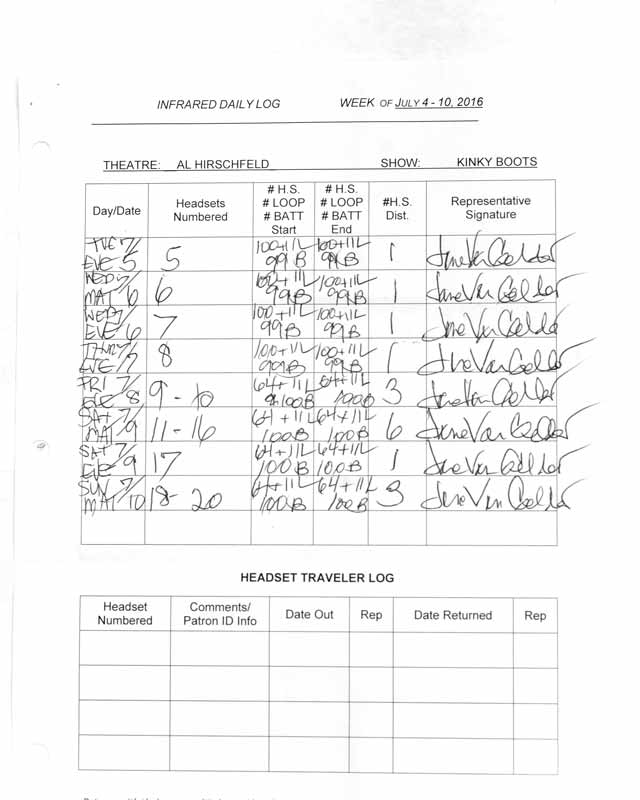 INFRARED DAILY LOG WEEK OF JULY 4 - 10, 2016
THEATRE: AL HIRSCHFELD SHOW: KINKY BOOTS
Day/Date Headsets Numbered # H.S. # LOOP # BATT Start # H.S. # LOOP # BATT End #H.S. Dist. Representative Signature
TUE 7/5 EVE 5 100+11L 99B 100+11L 99B 1 Jane Van Gelder
WED 7/6 MAT 6 100+11L 99B 100+11L 99B 1 Jane Van Gelder
WED 7/6 EVE 7 100+11L 99B 100+11L 99B 1 Jane Van Gelder
THUR 7/7 EVE 8 100+11L 99B 100+11L 99B 1 Jane Van Gelder
FRI 7/8 EVE 9-10 64+11L 100B 64+11L 100B 3 Jane Van Gelder
SAT 7/9 MAT 11-16 64+11L 100B 64+11L 100B 6 Jane Van Gelder
SAT 7/9 EVE 17 64+11L 100B 64+11L 100B 1 Jane Van Gelder
SUN 7/10 MAT 18-20 64+11L 100B 64+11L 100B 3 Jane Van Gelder
HEADSET TRAVELER LOG
Headset Numbered Comments/ Patron ID Info Date Out Rep Date Returned Rep